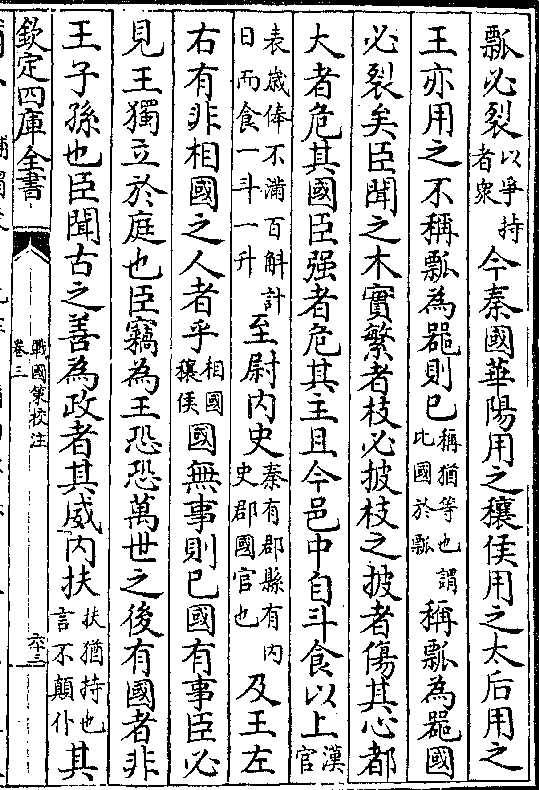 瓢必裂以爭持者衆今秦國華陽用之穰侯用之太后用之
王亦用之不稱瓢為器則已稱猶等也謂比國於瓢稱瓢為器國
必裂矣臣聞之木實繁者枝必披枝之披者傷其心都
大者危其國臣强者危其主且今邑中自斗食以上漢官
表歲俸不滿百斛計日而食一斗一升至尉内史秦有郡縣有内史郡國官也及王左
右有非相國之人者乎相國穰侯國無事則已國有事臣必
見王獨立於庭也臣竊為王恐恐萬世之後有國者非
王子孫也臣聞古之善為政者其威内扶扶猶持也言不顛仆其
欽定四庫全書
戰國策校注
卷三
六十三